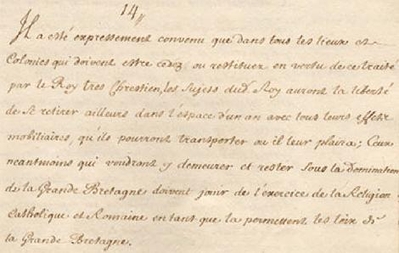 14.,
Il a esté expressement convenu que dans tous les lieux et
Colonies qui doivent estre cedez ou restituez en vertu de ce traité
par le Roy tres Chrestien, les Sujets dud. Roy auront la liberté
de se retirer ailleurs dans l'espace d'un an avec tous leurs effets
mobiliaires, qu'ils pourront transporter ou il leur plaira; Ceux
neantmoins qui voudront y demeurer et rester sous la Domination
de la Grande Bretagne doivent jouir de l'exercice de la Religion
Catholique et Romaine en tant que la permettent les loix de
la Grande Bretagne.